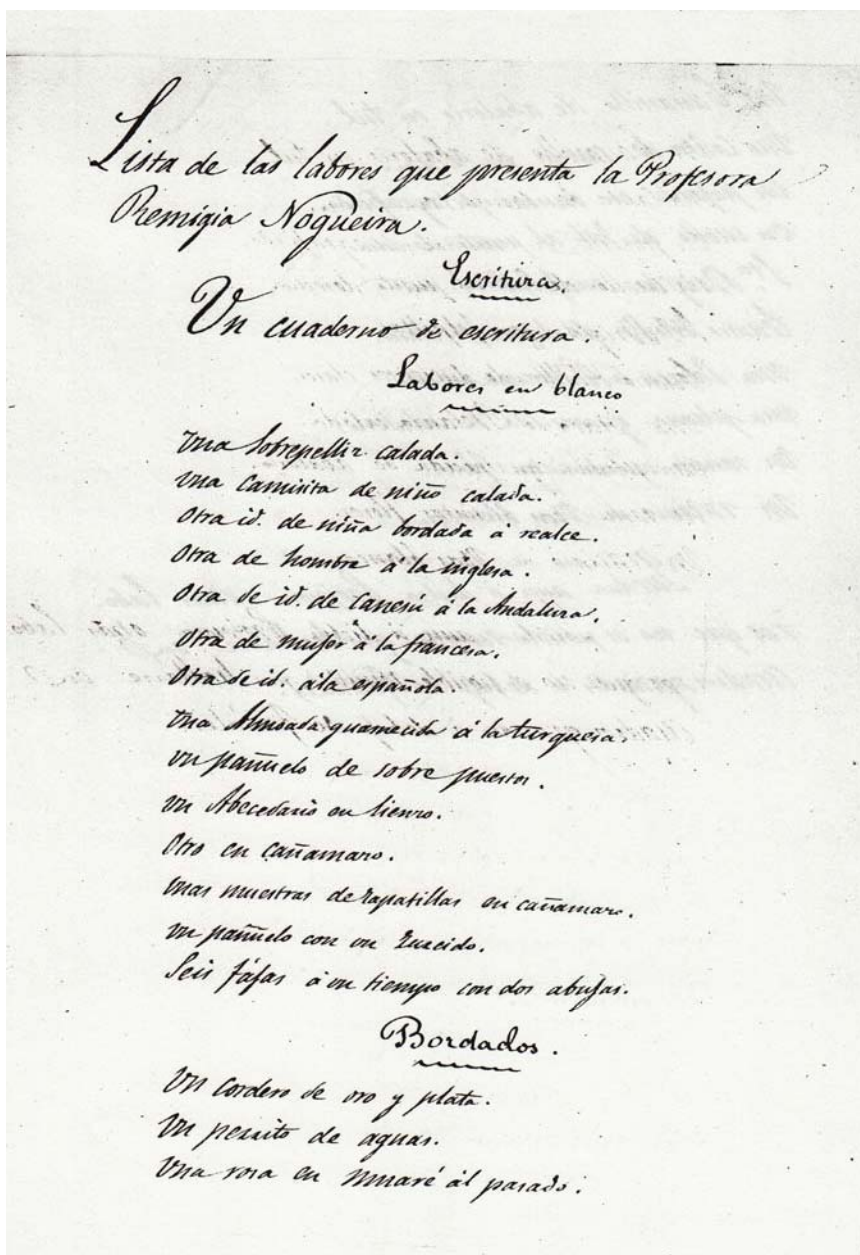 Lista de las labores que presenta la Profesora
Remigia Nogueira.
Escritura.
Un cuaderno de escritura.
Labores en blanco
una Sobrepelliz calada.
una camisita de niño calada.
Otra id. de niña bordada á realce.
Otra de hombre á la inglesa.
Otra de id. de Canesú á la Andaluza.
Otra de mujer á la francesa.
Otra de id. á la española.
una Almoada guarnecida á la turquesa.
un pañuelo de sobre puestos.
un Abecedario en lienzo.
Otro en cañamazo.
unas muestras de zapatillas en cañamazo.
un pañuelo con un zurcido.
Seis fájas á un tiempo con dos abujas.
Bordados.
Un cordero de oro y plata.
Un perrito de aguas.
Una rosa en muaré al pasado.